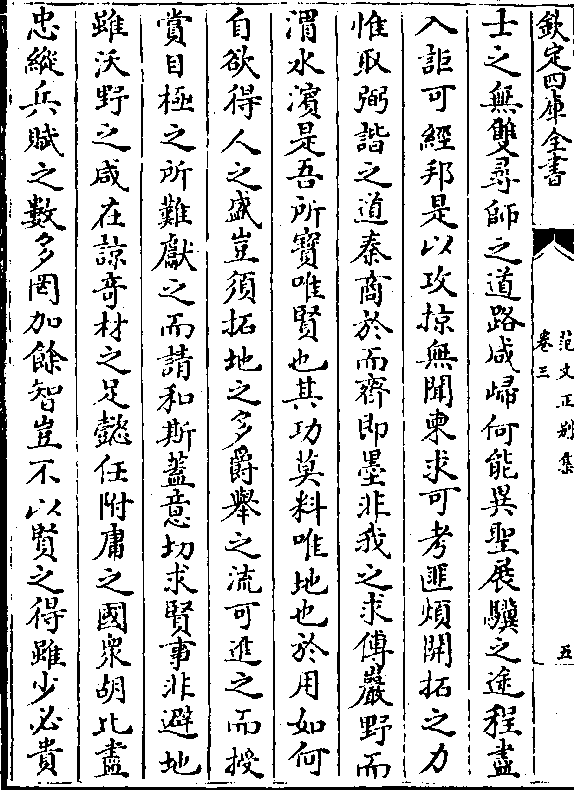 欽定四庫全書
范文正别集
卷三
五
士之無雙尋師之道路咸歸何能異聖展驥之途程盡
入詎可經邦是以攻掠無聞東求可考匪煩開拓之力
惟取弼諧之道秦商於而齊即墨非我之求傅巖野而
渭水濱是吾所寶唯賢也其功莫料唯地也於用如何
自欲得人之盛豈須拓地之多爵舉之流可進之而授
賞目極之所難獻之而請和斯蓋意切求賢事非避地
雖沃野之咸在諒竒材之足懿任附庸之國衆胡比盡
忠縱兵賦之數多罔加餘智豈不以賢之得雖少必貴